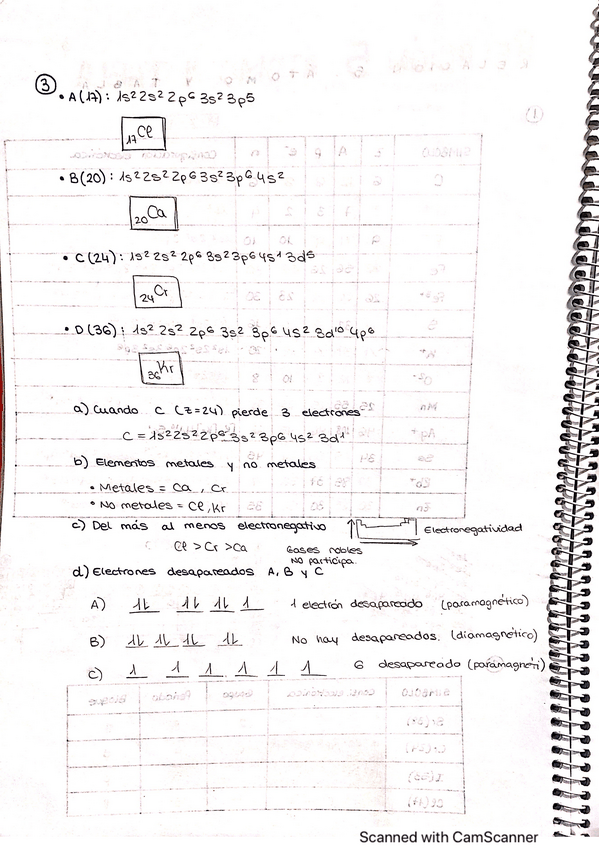 ③
• A(17): 1s² 2s² 2p⁶ 3s² 3p⁵
₁₇Cl
• B(20): 1s² 2s² 2p⁶ 3s² 3p⁶ 4s²
₂₀Ca
• C(24): 1s² 2s² 2p⁶ 3s² 3p⁶ 4s¹ 3d⁵
₂₄Cr
• D(36): 1s² 2s² 2p⁶ 3s² 3p⁶ 4s² 3d¹⁰ 4p⁶
₃₆Kr
a) Cuando C (Z=24) pierde 3 electrones
C = 1s² 2s² 2p⁶ 3s² 3p⁶ 4s² 3d¹
b) Elementos metales y no metales
• Metales = Ca, Cr
• No metales = Cl, Kr
c) Del más al menos electronegativo Electronegatividad
Cl > Cr > Ca Gases nobles
NO participa.
d) Electrones desapareados A, B y C
A) 1L 1L 1L 1 1 electrón desapareado (paramagnético)
B) 1L 1L 1L 1L No hay desapareados. (diamagnético)
C) 1 1 1 1 1 1 6 desapareado (paramagneti)
Scanned with CamScanner